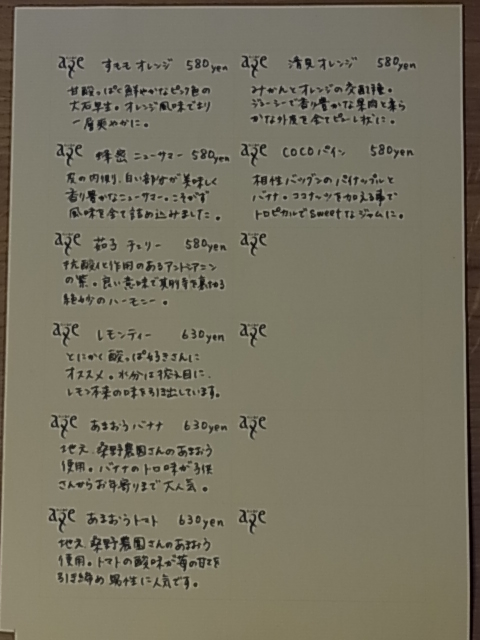 age すももオレンジ 580yen
甘酸っぱく鮮やかなピンク色の
大石早生。オレンジ風味でより
一層爽やかに。
age 蜂蜜ニューサマー 580yen
皮の内側、白い部分が美味しく
香り豊かなニューサマー。こそがず
風味を全て詰め込みました。
age 茄子チェリー 580yen
抗酸化作用のあるアントシアニン
の紫。良い意味で期待を裏切る
絶妙のハーモニー。
age レモンティー 630yen
とにかく酸っぱ好きさんに
オススメ。水分は控え目に、
レモン本来の味を引き出しています。
age あまおうバナナ 630yen
地元、桑野農園さんのあまおう
使用。バナナのトロ味が子供
さんからお年寄りまで大人気。
age あまおうトマト 630yen
地元、桑野農園さんのあまおう
使用。トマトの酸味が苺の甘さを
引き締め男性に人気です。
age 清見オレンジ 580yen
みかんとオレンジの交配種。
ジューシーで香り豊かな果肉と柔ら
かな外皮を全てピューレ状に。
age COCOパイン 580yen
相性バツグンのパイナップルと
バナナ。ココナッツを加える事で
トロピカルでsweetなジャムに。
age
age
age
age